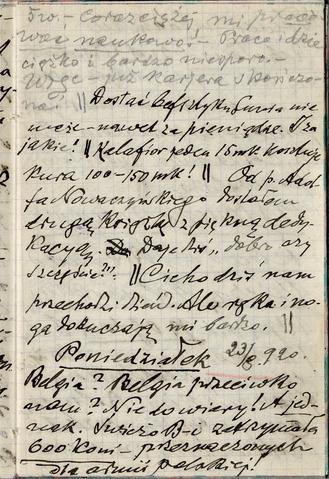 5w. - Coraz ciężej mi praco-
wać naukowo - Praca idzie
ciężko i bardzo niesporo. -
Więc - już kariera skończo-
na! || Dostać befsztyku Gunia nie
może - nawet za pieniądze. I za
jakie! || Kalafior jeden 15 mk. kosztuje
kura 100-150 mk! || Od p. Adol-
fa Nowaczyńskiego dostałem
drugą książkę z piękną dedy-
kacyą. Daje dziś „dobre czy
szczęście?". || Cicho dziś nam
przechodzi dzień. Ale ręka i no-
ga dokuczają mi bardzo. ||
Poniedziałek 23/8 920.
Belgia? Belgia przeciwko
nam? Nie do wiary! A jed-
nak. Świeżo B-i zatrzymała
600 koni - przeznaczonych
dla armii polskiej!